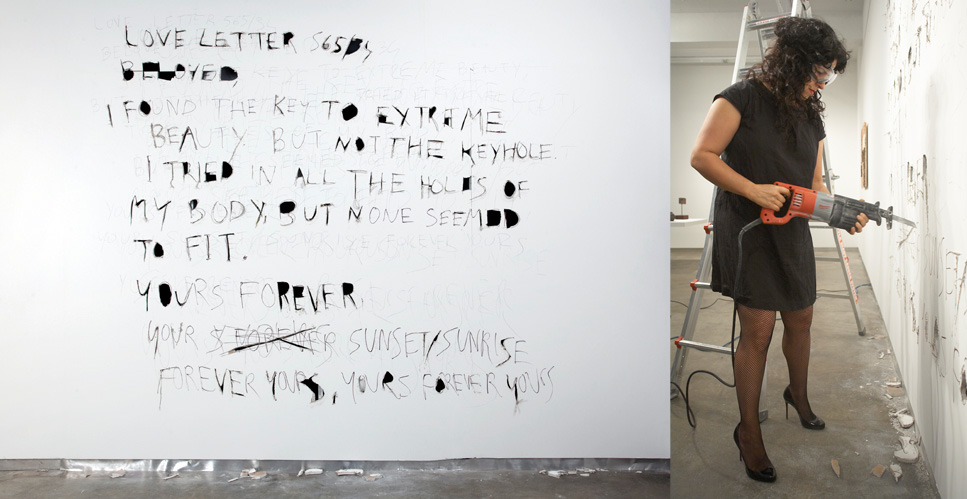 LOVE LETTER 5658,
BELOVED,
I FOUND THE KEY TO EXTREME
BEAUTY. BUT NOT THE KEYHOLE.
I TRIED IN ALL THE HOLES OF
MY BODY, BUT NONE SEEMED
TO FIT.
YOURS FOREVER,
YOUR SUNSET/SUNRISE
FOREVER YOURS, YOURS FOREVER YOURS